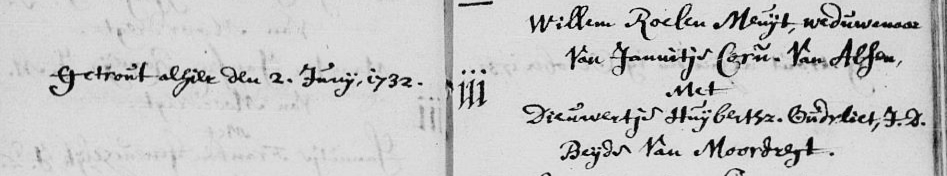 Getrout alhier den 2. Juny, 1732.
iii
Willem Roelen Meuyt, weduwenaar
Van Jannitje Corn. Van Alfen,
Met
Dieuwertje Huybertsz. Oudvliet, J.D.
Beyde Van Moordregt.